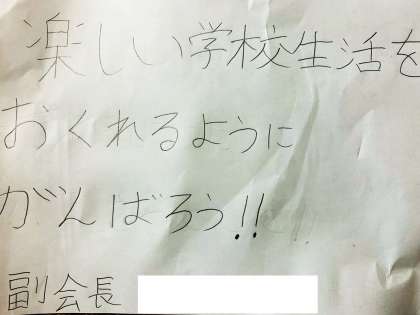 楽しい学校生活を
おくれるように
がんばろう!!
副会長